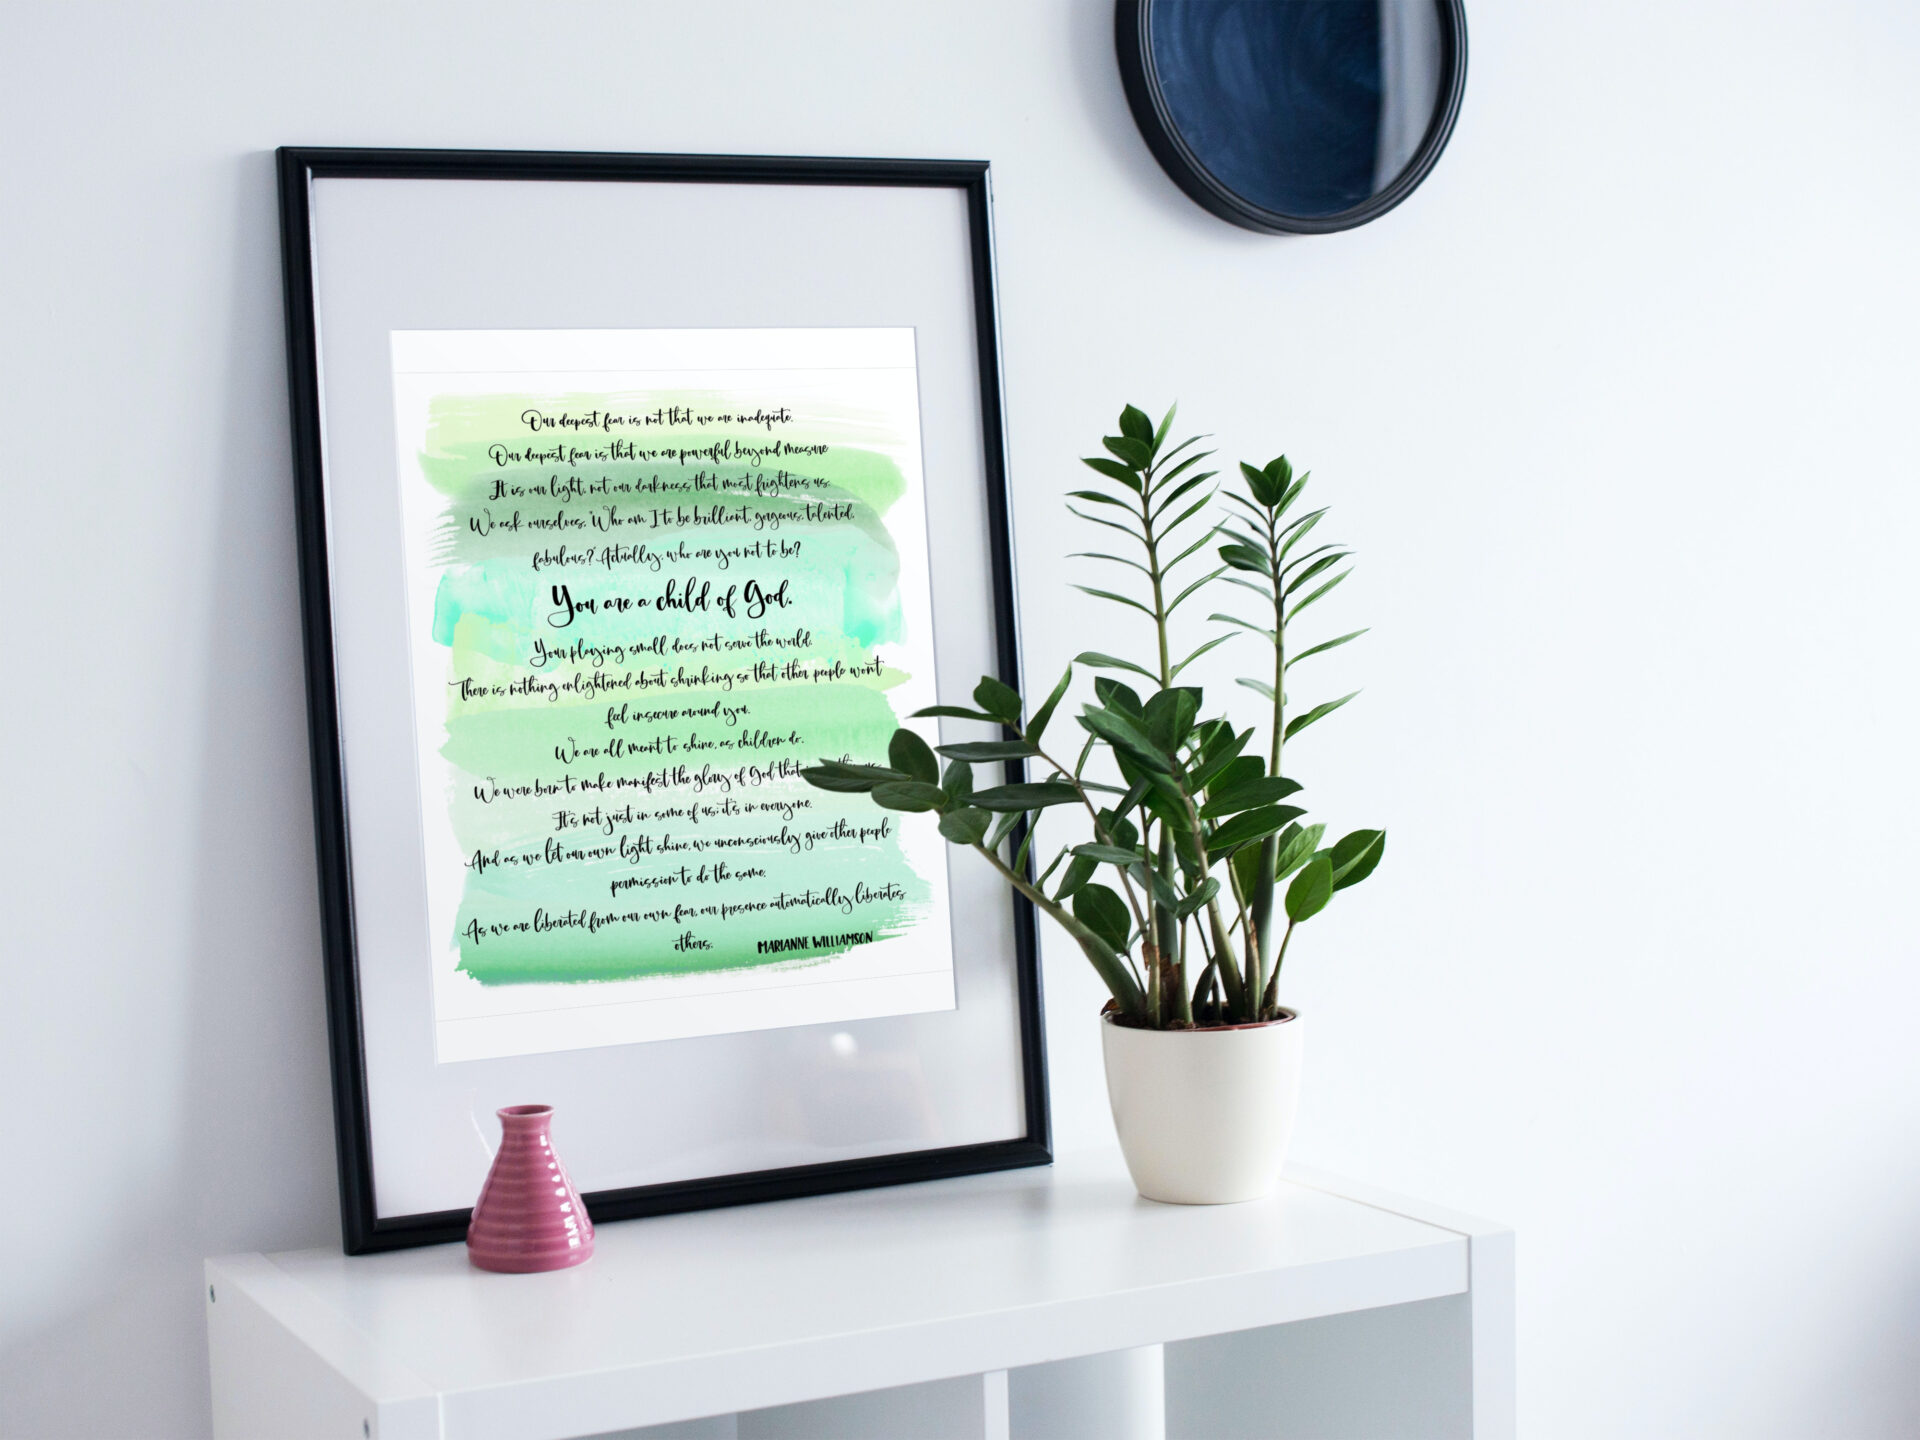 Our deepest fear is not that we are inadequate.
Our deepest fear is that we are powerful beyond measure
It is our light, not our darkness that most frightens us.
We ask ourselves, "Who am I to be brilliant, gorgeous, talented,
fabulous?" Actually, who are you not to be?
You are a child of God.
Your playing small does not serve the world.
There is nothing enlightened about shrinking so that other people won't
feel insecure around you.
We are all meant to shine, as children do.
We were born to make manifest the glory of God that us
It's not just in some of us; it's in everyone.
And as we let our own light shine, we unconsciously give other people
permission to do the same.
As we are liberated from our own fear, our presence automatically liberates
others.
MARIANNE WILLIAMSON